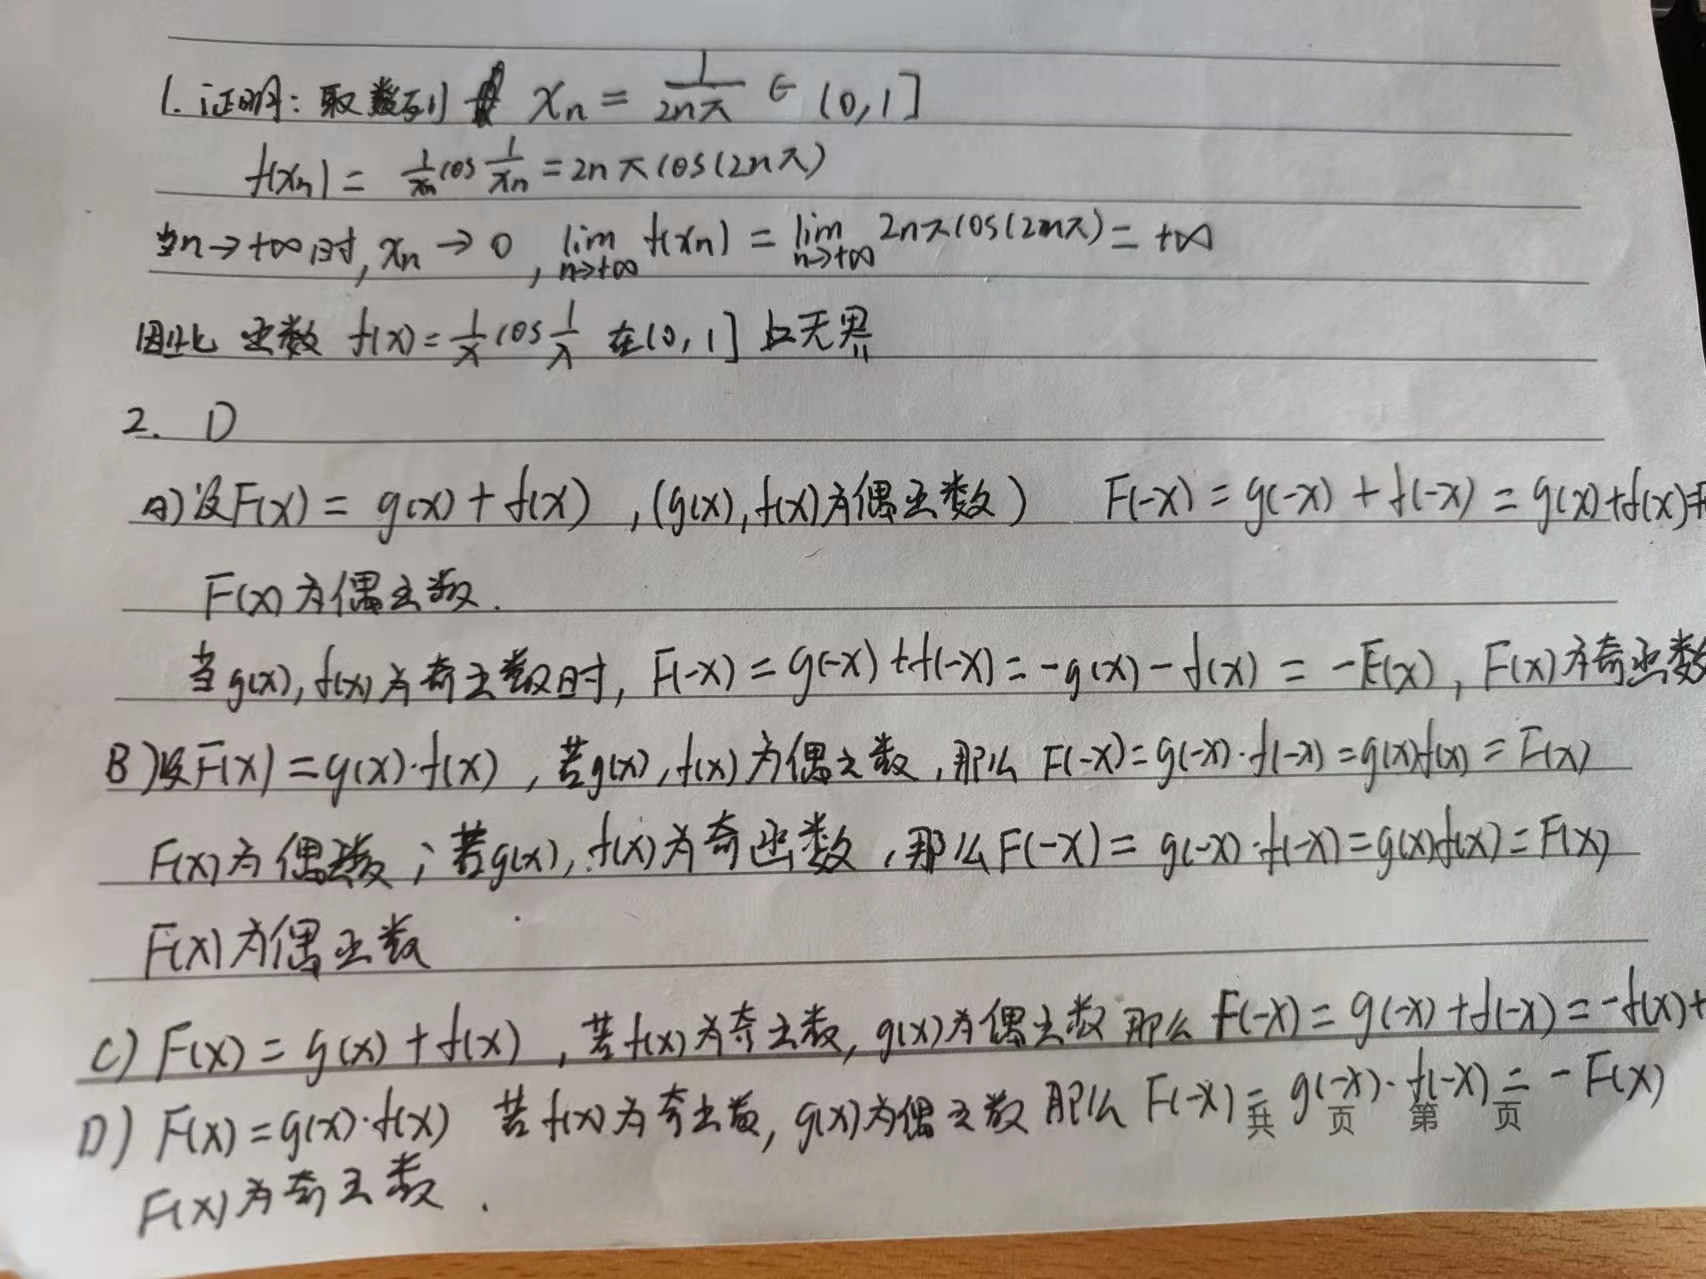 1. 证明: 取数列 xn = 1/2nπ ∈ (0,1]
f(xn) = 1/xn cos 1/xn = 2nπcos(2nπ)
当n→+∞时, xn→0, lim n→+∞ f(xn) = lim n→+∞ 2nπcos(2nπ) = +∞
因此 函数 f(x) = 1/x cos 1/x 在(0,1]上无界
2. D
A) 设F(x) = g(x)+f(x), (g(x),f(x)为偶函数) F(-x) = g(-x)+f(-x) = g(x)+f(x)=
F(x)为偶函数.
当g(x),f(x)为奇函数时, F(-x) = g(-x)+f(-x) = -g(x)-f(x) = -F(x), F(x)为奇函数
B) 设F(x) = g(x)·f(x), 若g(x),f(x)为偶函数, 那么 F(-x) = g(-x)·f(-x) = g(x)f(x) = F(x)
F(x)为偶函数; 若g(x),f(x)为奇函数, 那么F(-x) = g(-x)·f(-x) = g(x)f(x) = F(x)
F(x)为偶函数
C) F(x) = g(x)+f(x), 若f(x)为奇函数, g(x)为偶函数 那么 F(-x) = g(-x)+f(-x) = -f(x)+
D) F(x) = g(x)·f(x) 若f(x)为奇函数, g(x)为偶函数 那么 F(-x) = g(-x)·f(-x) = -F(x)
共 页 第 页
F(x)为奇函数.